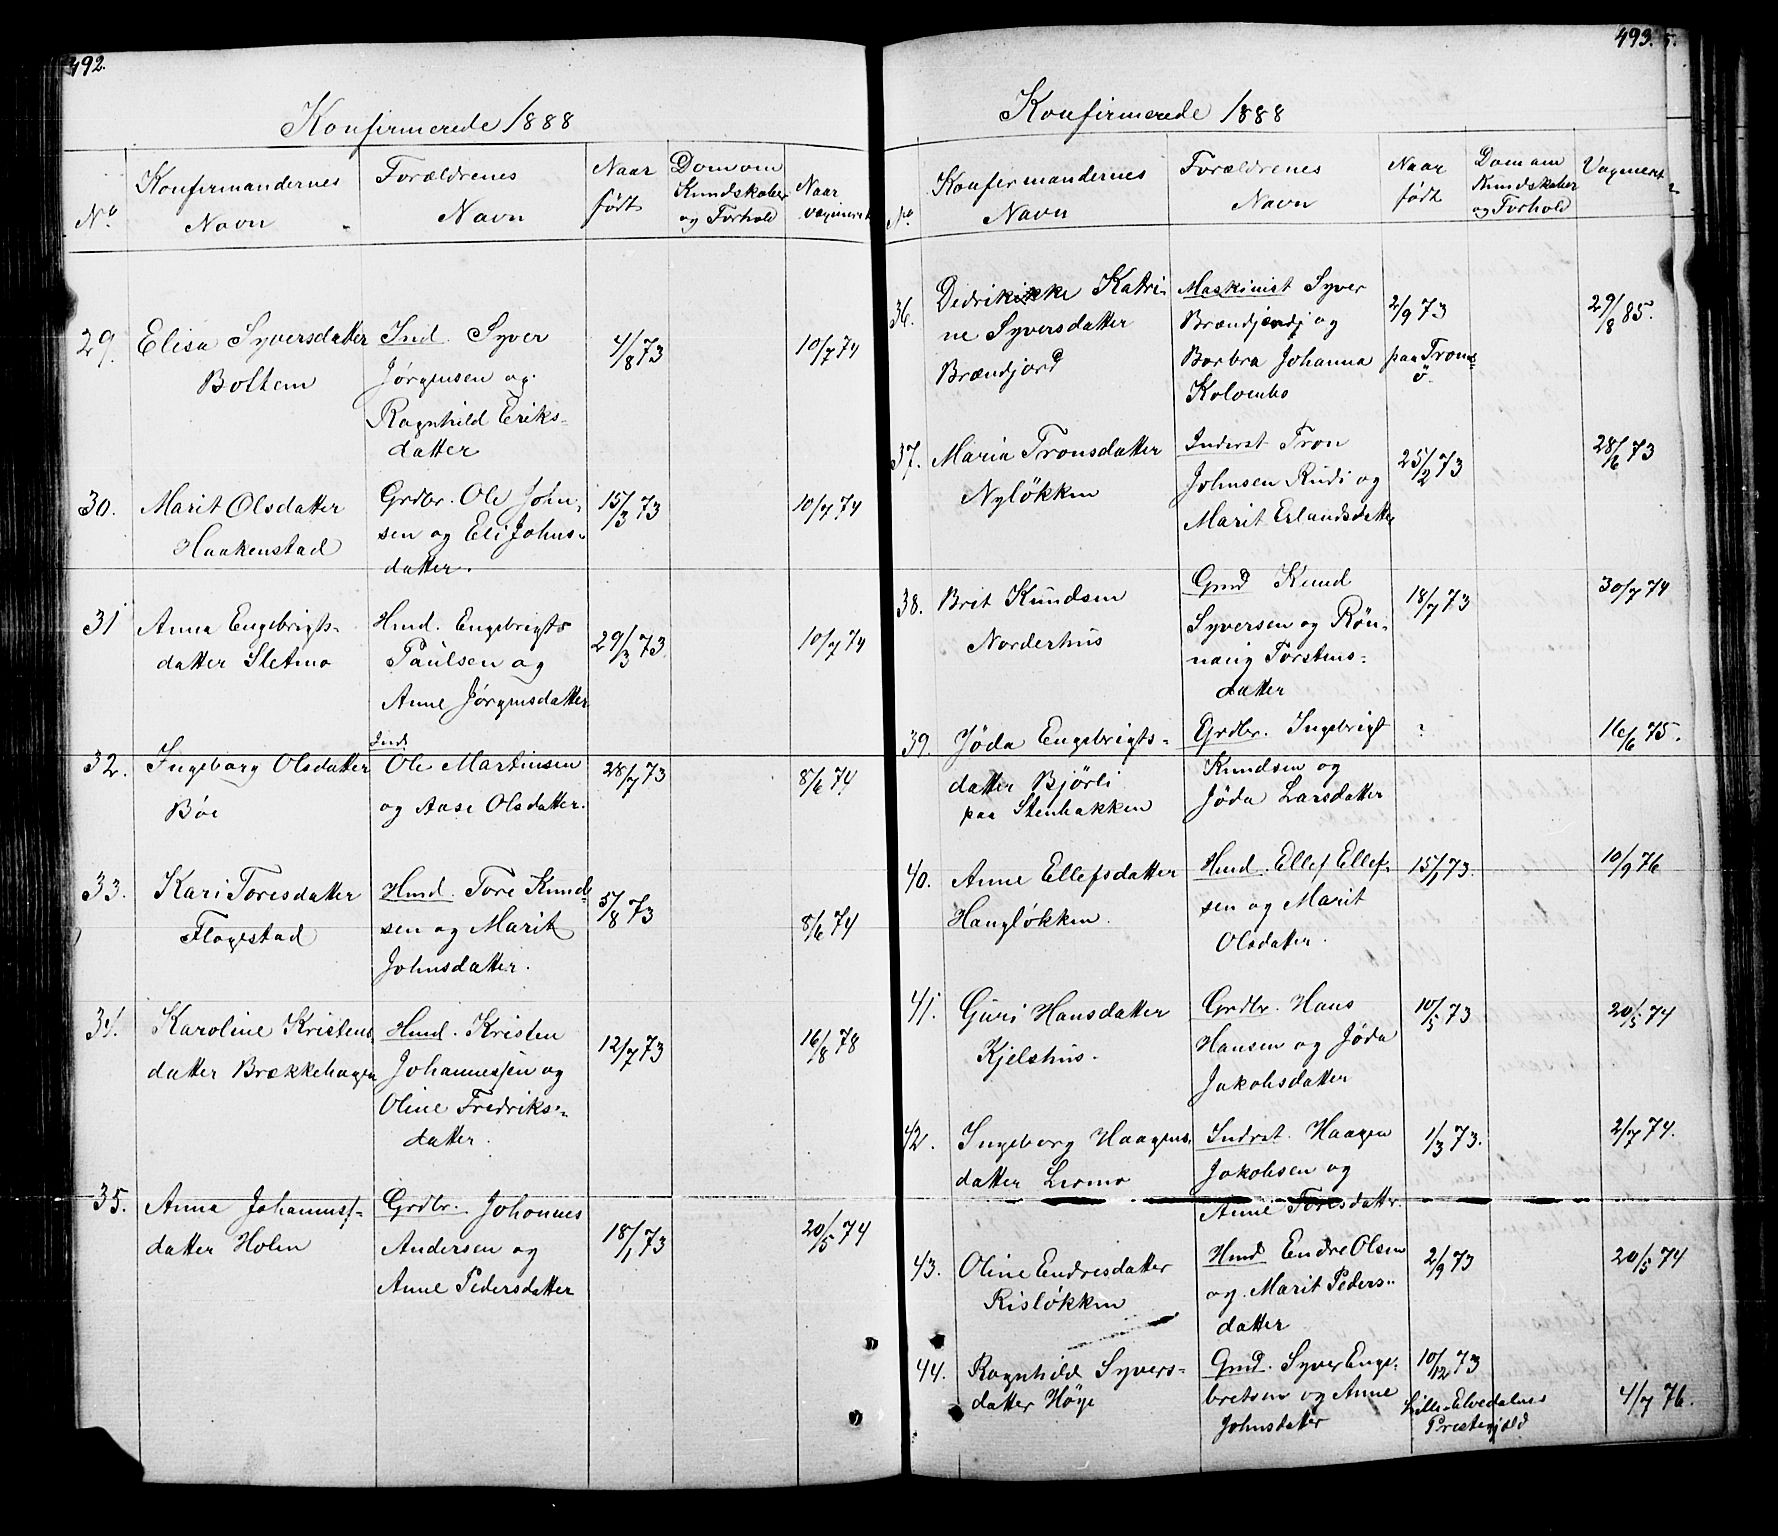 492.
Konfirmerede 1888
No
Konfirmandernes
Navn
Forældrenes
Navn
Naar
født
Dom om
Kundskaber
og Forhold
Naar
vaxineret
29.
Elisa Syversdatter
Boltem
Ind. Syver
Jørgensen og
Ragnhild Eriks-
datter
4/8 73
10/7 74
30.
Marit Olsdatter
Haakenstad
Grdbr. Ole John-
sen og Eli Johns-
datter.
15/3 73
10/7 74
31
Anna Engebrigts-
datter Sletmo
Hmd. Engebrigts
Paulsen og
Anne Jørgensdatter
29/3 73.
10/7 74
32.
Ingeborg Olsdatter
Böe
Inds
Ole Martinsen
og Aase Olsdatter.
28/7 73
8/6 74
33.
Kari Toresdatter
Flagestad
Hmd. Tore Knud-
sen og Marit
Johnsdatter.
5/8 73
8/6 74
34.
Karoline Kristens
datter Brækkehagen
Hmd. Kristen
Johannessen og
Oline Fredriks-
datter.
12/7 73
16/8 78
35.
Anna Johannes-
datter Holen
Grdbr. Johannes
Andersen og
Anne Pedersdatter
18/1 73
20/5 74
493.
Konfirmerede 1888
No
Konfirmandernes
Navn
Forældrenes
Navn
Naar
født
Dom om
Kundskaber
og Forhold
36.
Katri-
ne Syversdatter
Brændjord
Maskinist Syver
og
Barbra Johanna
2/9 73
paa Troms-
ö.
29/8 85.
37.
Maria Tronsdatter
Nyløkken
Inderst Tron
Johnsen Rudi og
Marit Erlandsdatter
25/2 73
28/6 73
38.
Brit Knudsen
Norderhus
Gmd Knud
Syversen og Rön-
naug Torstens-
datter
18/7 73
30/7 74
39.
Jøda Engebrigts-
datter Bjørli
paa Stenbakken
Grdbr. Ingebrigt
Knudsen og
Jøda Larsdatter
?
16/6 75.
40.
Anne Ellefsdatter
Haugløkken.
Hmd. Ellef Ellef-
sen og Marit
Olsdatter.
15/1 73.
10/9 76
41.
Guri Hansdatter
Kjelshus.
Grdbr. Hans
Hansen og Jøda
Jakobsdatter
10/5 73
20/5 74
42.
Ingeborg Haagens
datter Lermo
Indrst. Haagen
Jakobsen og
Anne Toresdatter.
1/3 73.
2/7 74.
43.
Oline Endresdatter
Risløkken
Hmd Endre Olsen
og Marit Peders-
datter
2/9 73
20/5 74
44.
Ragnhild Syvers-
datter Høye
Gmd. Syver Enge-
bretsen og Anne
Johnsdatter
10/12 73
Lille-Elvedalens
Prestegjæld
4/7 76.